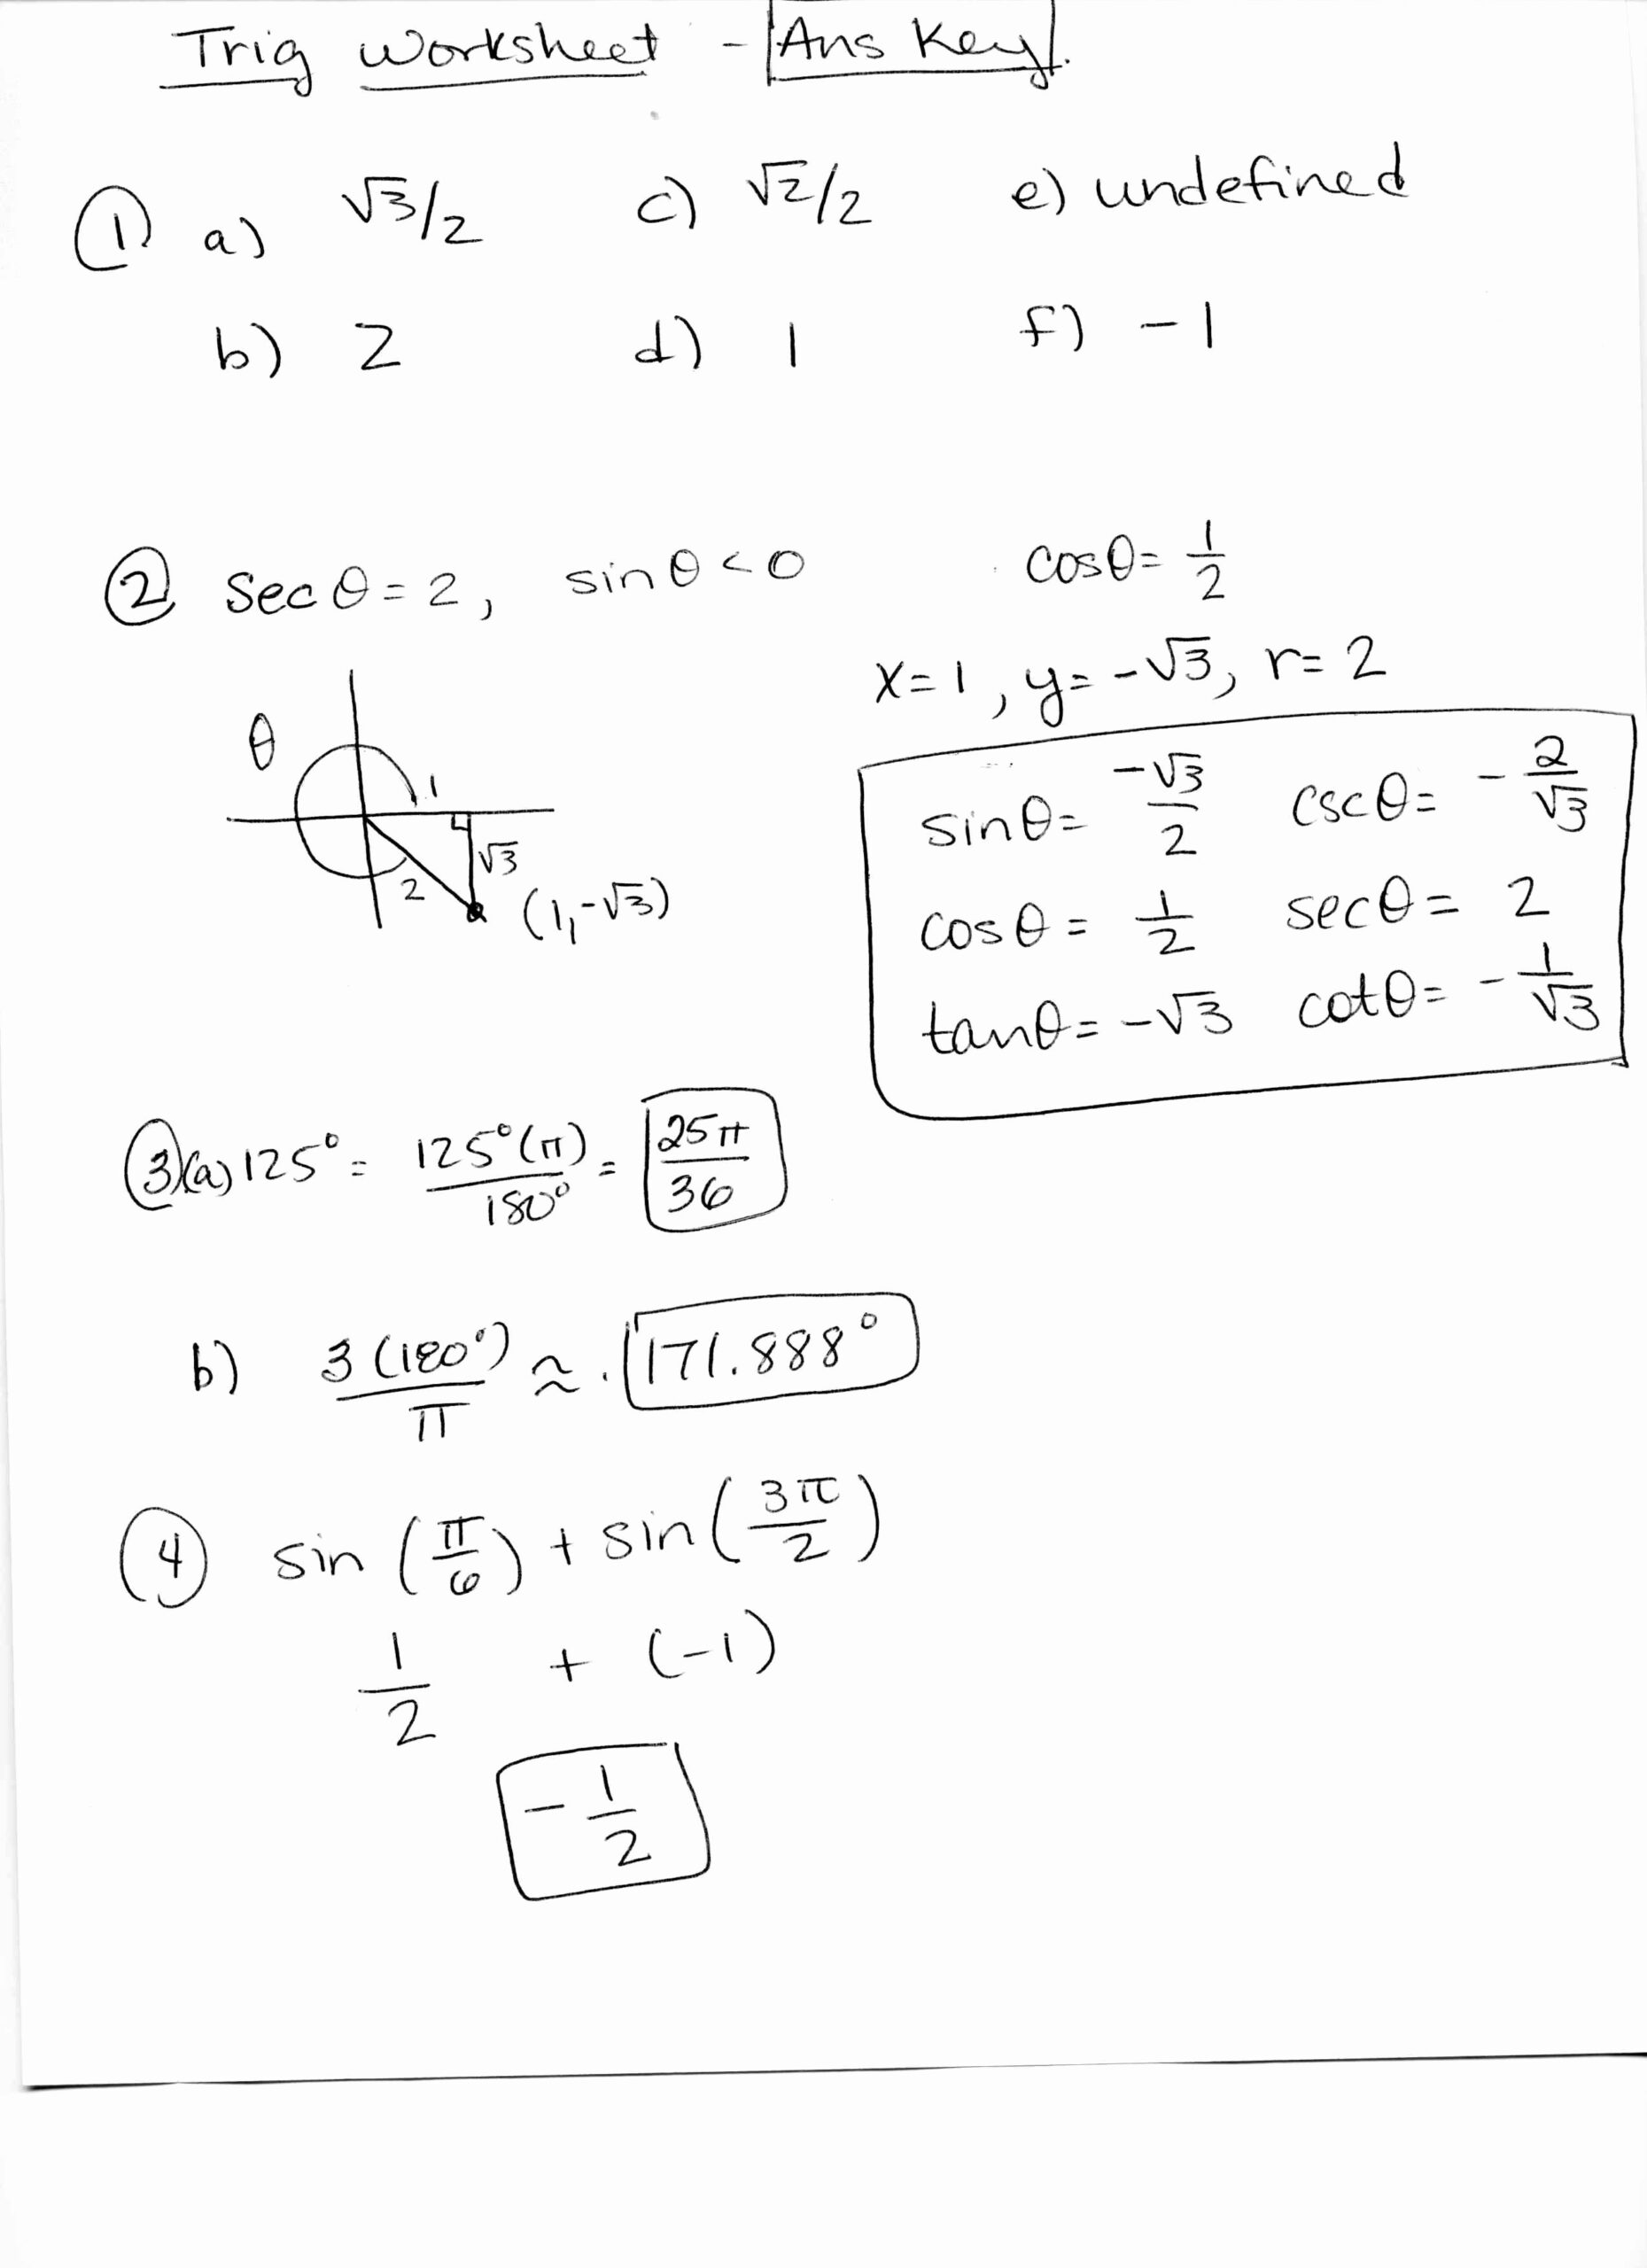 Trig Worksheet - Ans Key.
① a) √3/2 c) √2/2 e) undefined
b) 2 d) 1 f) -1
② sec θ = 2, sin θ < 0 cos θ = 1/2
x = 1, y = -√3, r = 2
θ 1
√3
2 (1, -√3)
sin θ = -√3/2 csc θ = -2/√3
cos θ = 1/2 sec θ = 2
tan θ = -√3 cot θ = -1/√3
③ (a) 125° = 125°(π)/180° = 25π/36
b) 3(180°)/π ≈ 171.888°
④ sin (π/6) + sin (3π/2)
1/2 + (-1)
-1/2